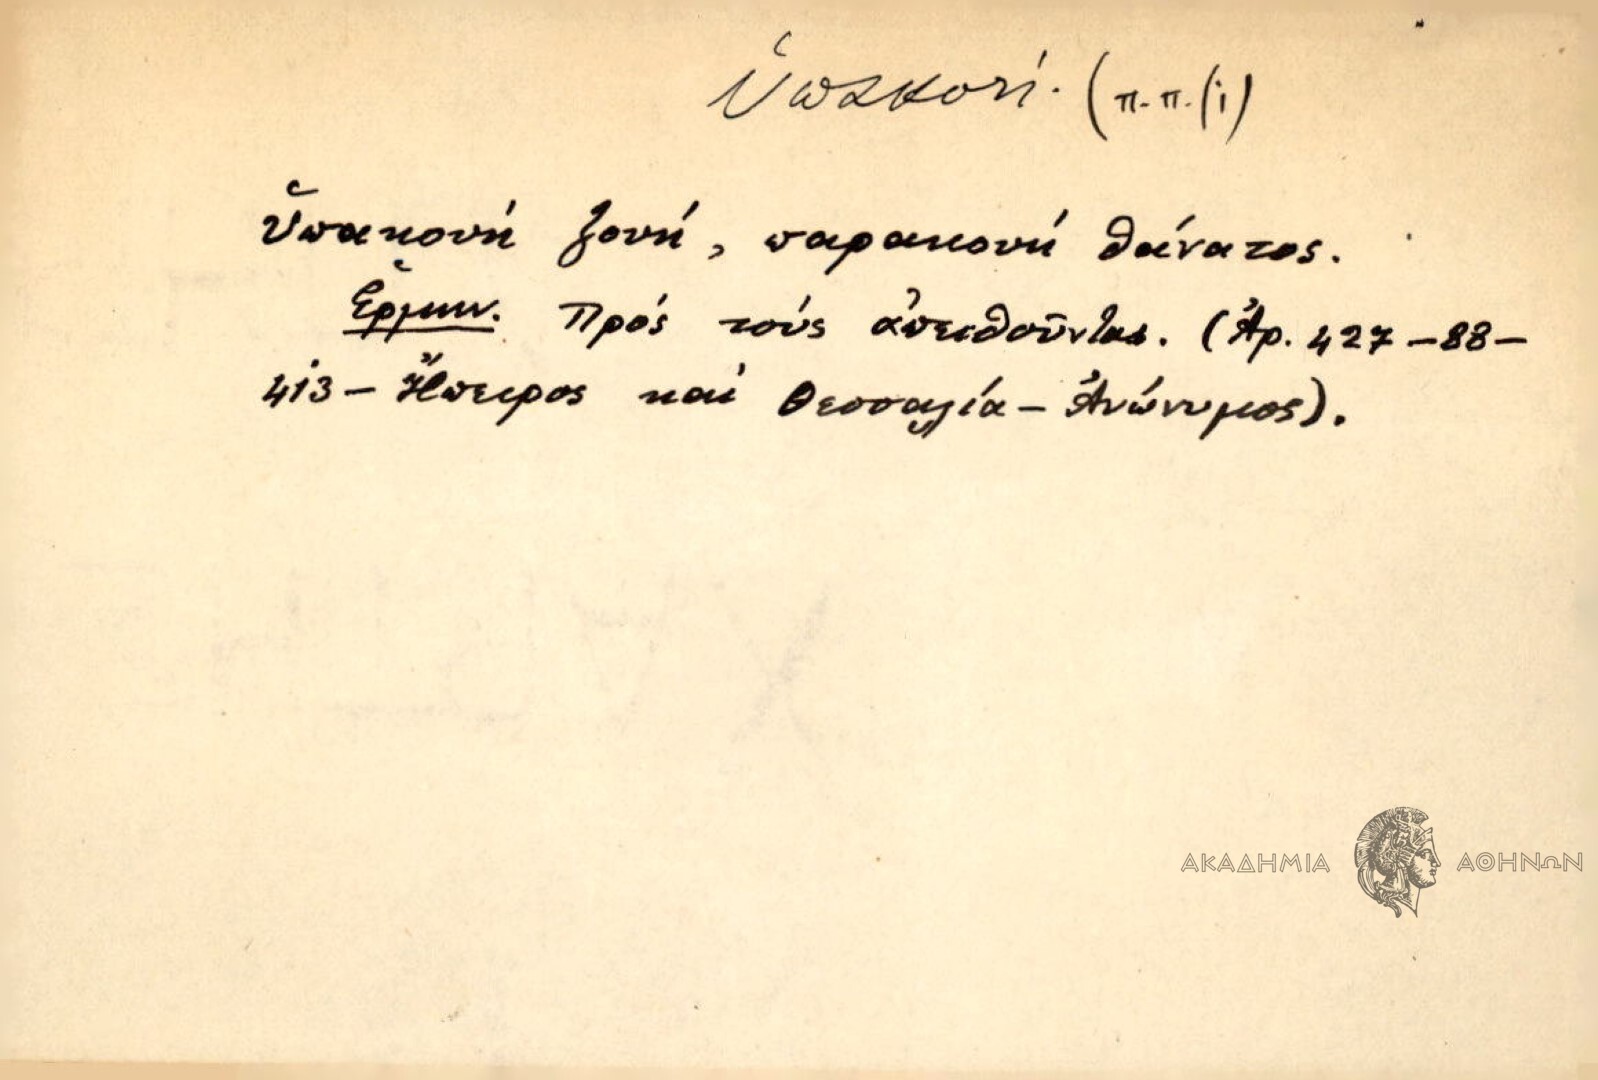 ὑπακοή. (π.π. (i)
Ὑπακουή ζουή, παρακουή θάνατος.
Ἑρμην. Πρός τούς ἀπειθοῦντας. (Ἀρ. 427 – 88 –
413 – Ἤπειρος καί Θεσσαλία – Ἀνώνυμος).
ΑΚΑΔΗΜΙΑ ΑΘΗΝΩΝ